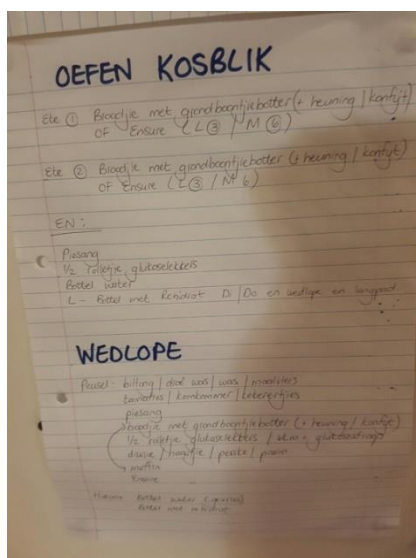 OEFEN KOSBLIK
Ete ① Broodjie met grondboontjiebotter (+ heuning / konfyt)
OF Ensure (L③ / M⑥)
Ete ② Broodjie met grondboontjiebotter (+ heuning / konfyt)
OF Ensure (L③ / M 6)
EN:
Piesang
1/2 rolletjie glukoselekkers
Bottel water
L - Bottel met Rehidrat Di / Do en wedlope en langpad
WEDLOPE
Peusel: biltong / droë wors / wors /
tamaties / komkommer /
piesang
broodjie met grondboontjiebotter (+ heuning / konfyt)
1/2 rolletjie glukoselekkers /
druiwe / / perske /
muffin
Ensure
Bottel water
Bottel met rehidrat